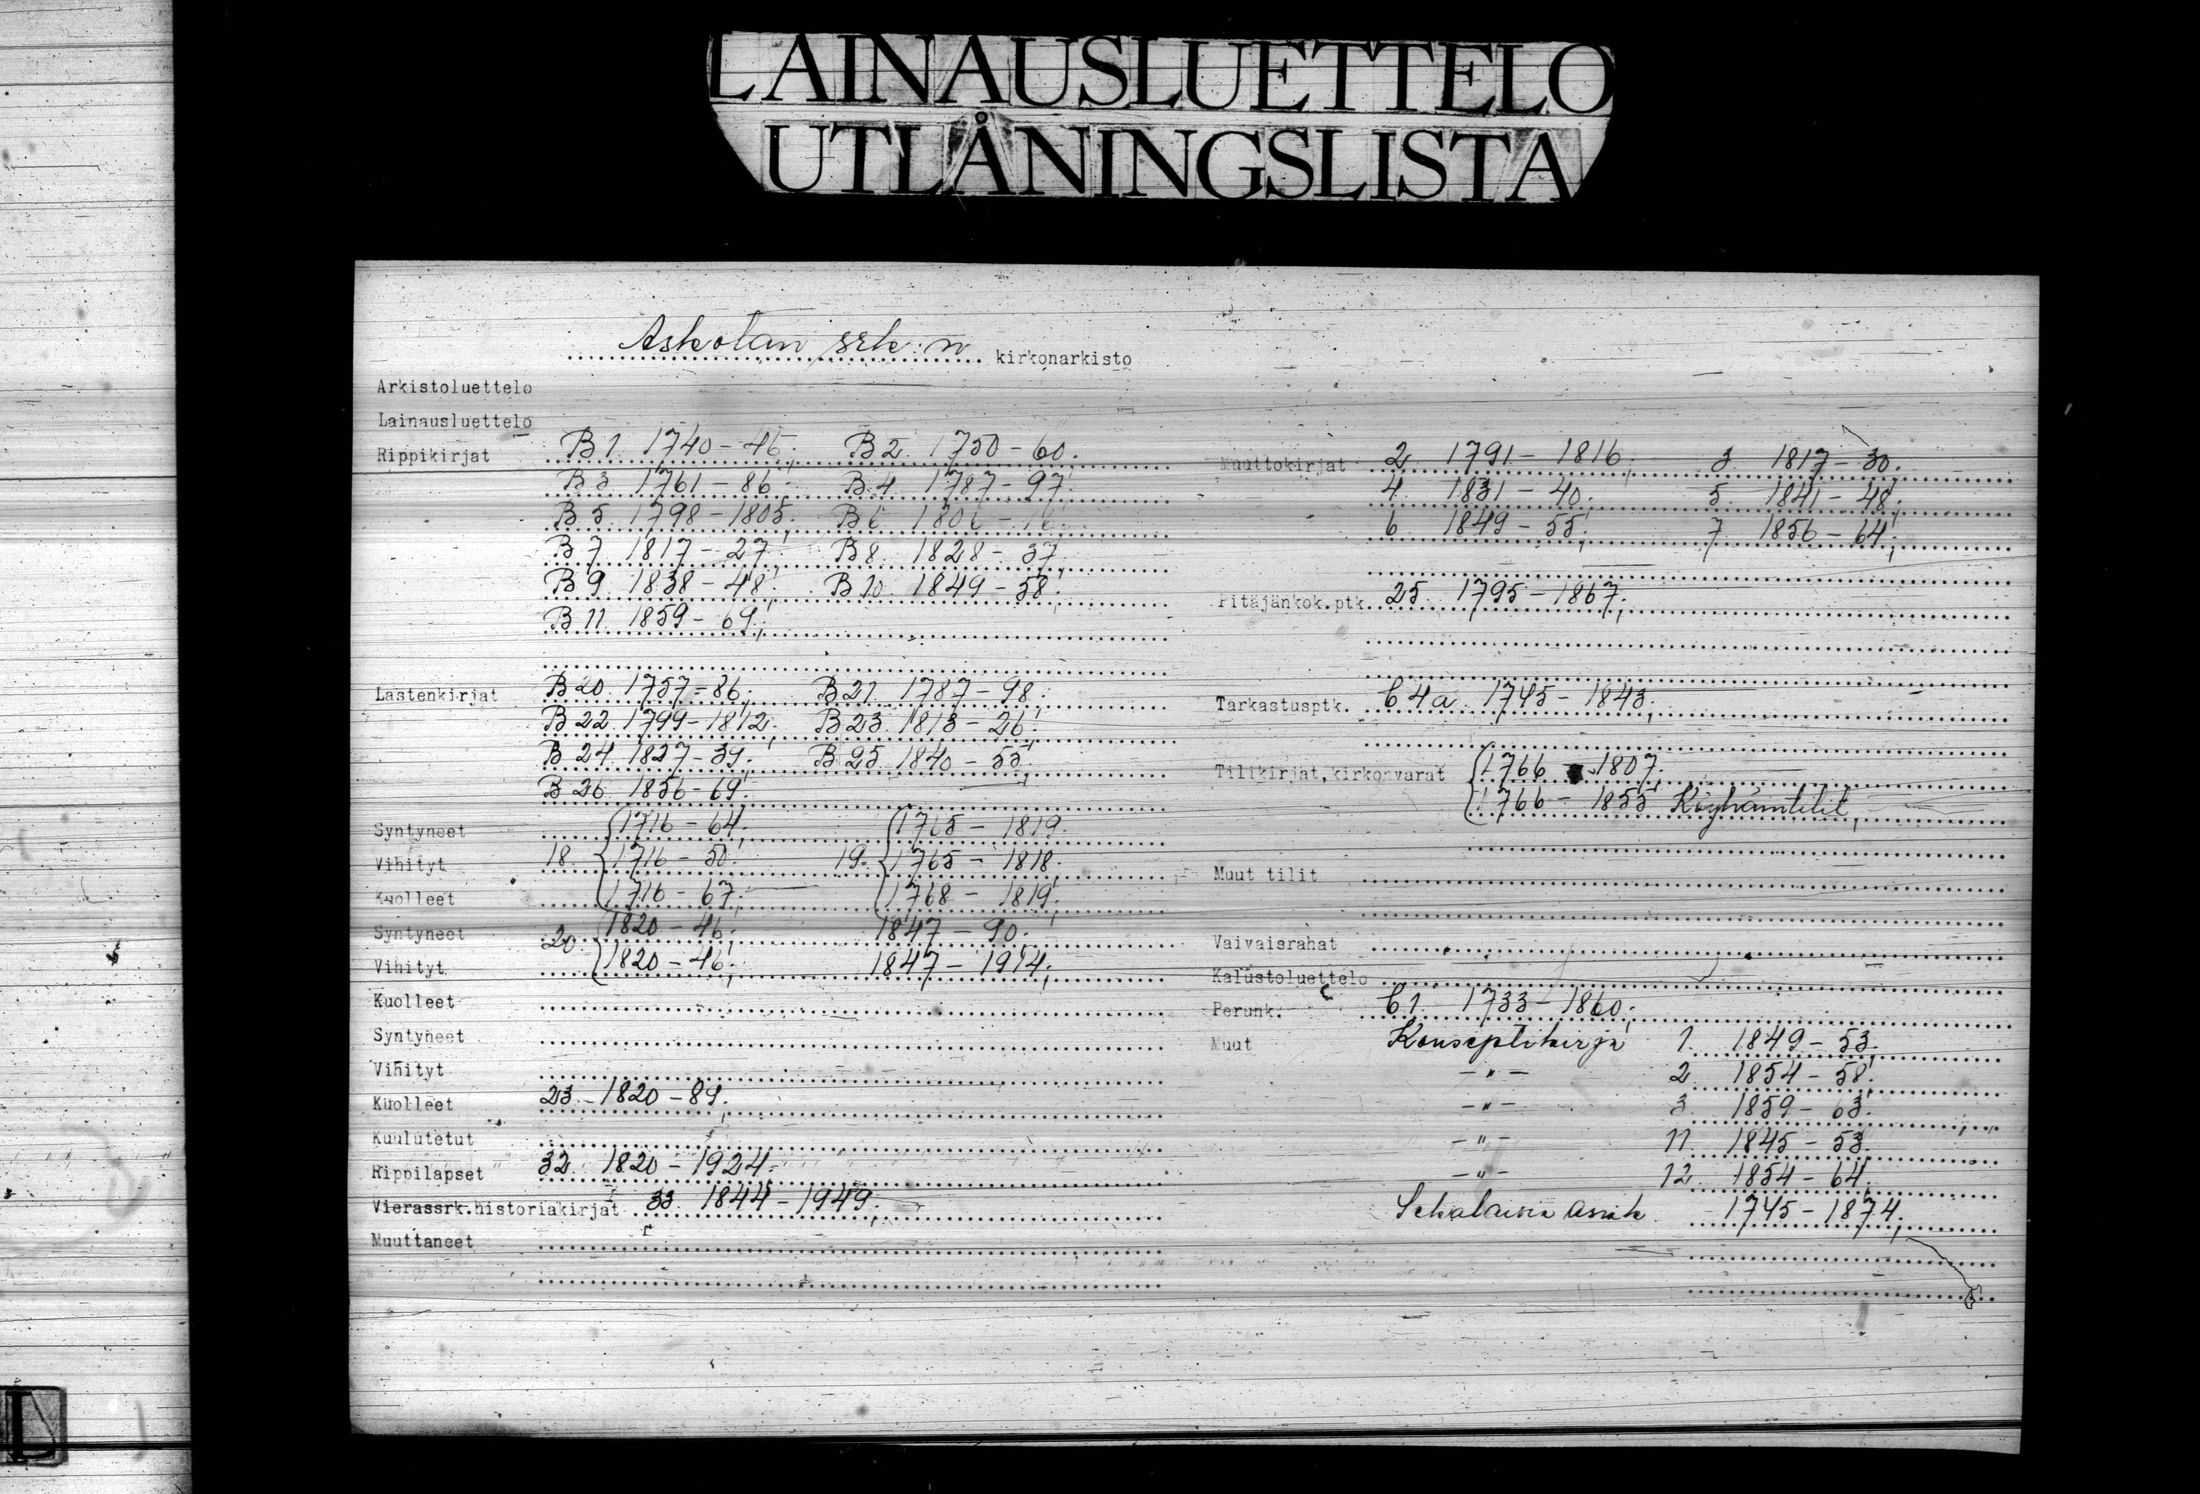 LAINAUSLUETTELO
UTLÅNINGSLISTA
Askolan srk:n kirkonarkisto
Arkistoluettelo
Lainausluettelo
Rippikirjat B 1. 1740-46; B 2. 1750-60.
B 3 1761-86; B 4. 1787-97;
B 5. 1798-1805; B 6. 1806-16;
B 7 1817-27; B 8. 1828-37
B 9. 1838-48; B 10. 1849-58;
B 11. 1859-69;
Lastenkirjat B 20. 1757-86; B 21. 1787-98;
B 22 1799-1812; B 23. 1813-26;
B 24. 1827-39; B 25. 1840-55;
B 26. 1856-69;
Syntyneet 1716-64; 1765-1819.
Vihityt 18. 1716-50. 19. 1765-1818;
Kuolleet 1716-67; 1768-1819;
Syntyneet 20 1820-46; 1847-90.
Vihityt 1820-46; 1847-1914;
Kuolleet
Syntyneet
Vihityt
Kuolleet 23. 1820-89;
Kuulutetut
Rippilapset 32. 1820-1924.
Vierassrk.historiakirjat 33. 1844-1949;
Muuttaneet
Muuttokirjat 2. 1791-1816; 3. 1817-30;
4. 1831-40; 5. 1841-48;
6. 1849-55; 7. 1856-64;
Pitäjänkok.ptk. 25. 1795-1867;
Tarkastusptk. C 4a. 1745-1843;
Tilikirjat,kirkonvarat 1766-1807;
1766-1855 Köyhäintilit,
Muut tilit
Vaivaisrahat
Kalustoluettelo
Perunk. C 1. 1733-1860;
Muut Konseptikirja 1. 1849-53.
-"- 2. 1854-58;
-"- 3. 1859-63.
-"- 11. 1845-53.
-"- 12. 1854-64.
Sekalaisia asiak. 1745-1874;
L